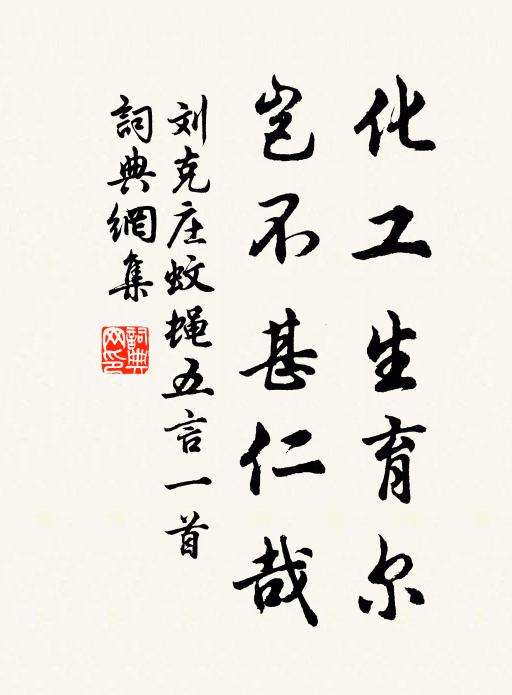 化工生育尔
岂不甚仁哉
刘克庄蚊蝇五言一首
詞典網集
詞典网印